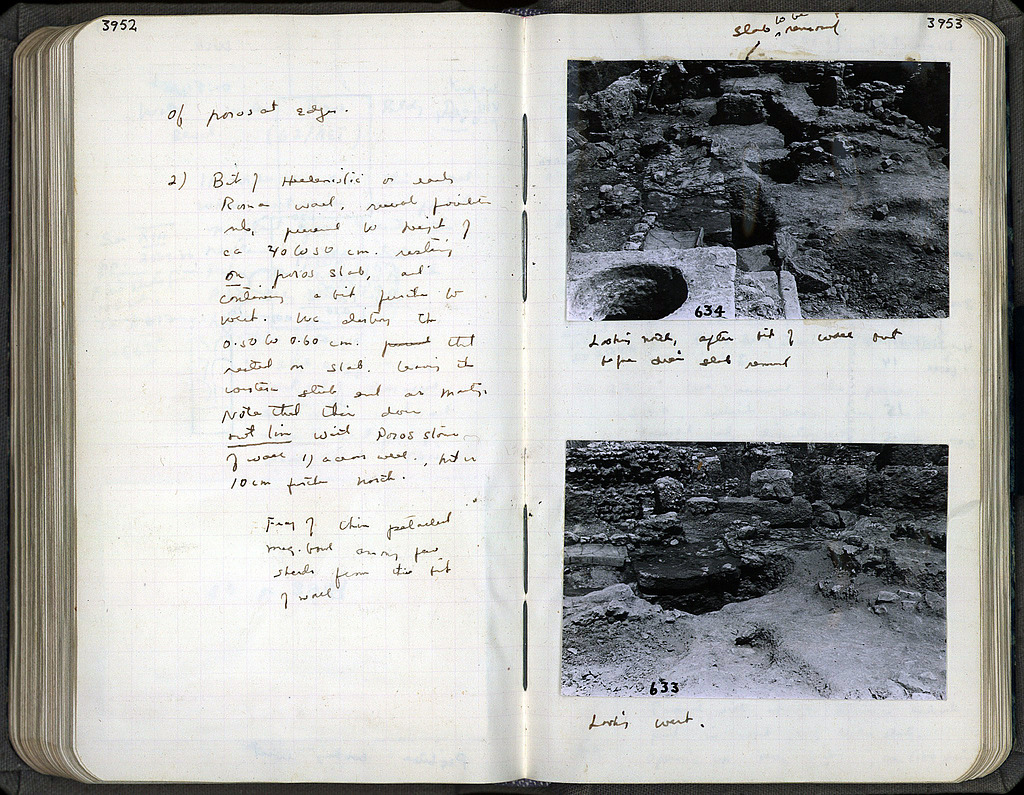 3952
Of poros at edges.
2) Bit of Hellenistic or early
Roman wall, reused
ca 40 to 50 cm. resting
on poros slab, and
containing a bit further to
west. We destroy the
0.50 to 0.60 cm. that
rested on slab, leaving the
western
Note that this does
not line with Poros stone
of wall 1) across well, but is
10 cm further north.
Frag of thin petalled
meg. bowl among few
sherds from this bit
of wall
3953
slab to be removed
634
Looking north, after bit of wall and
slab removed
633
Looking west.